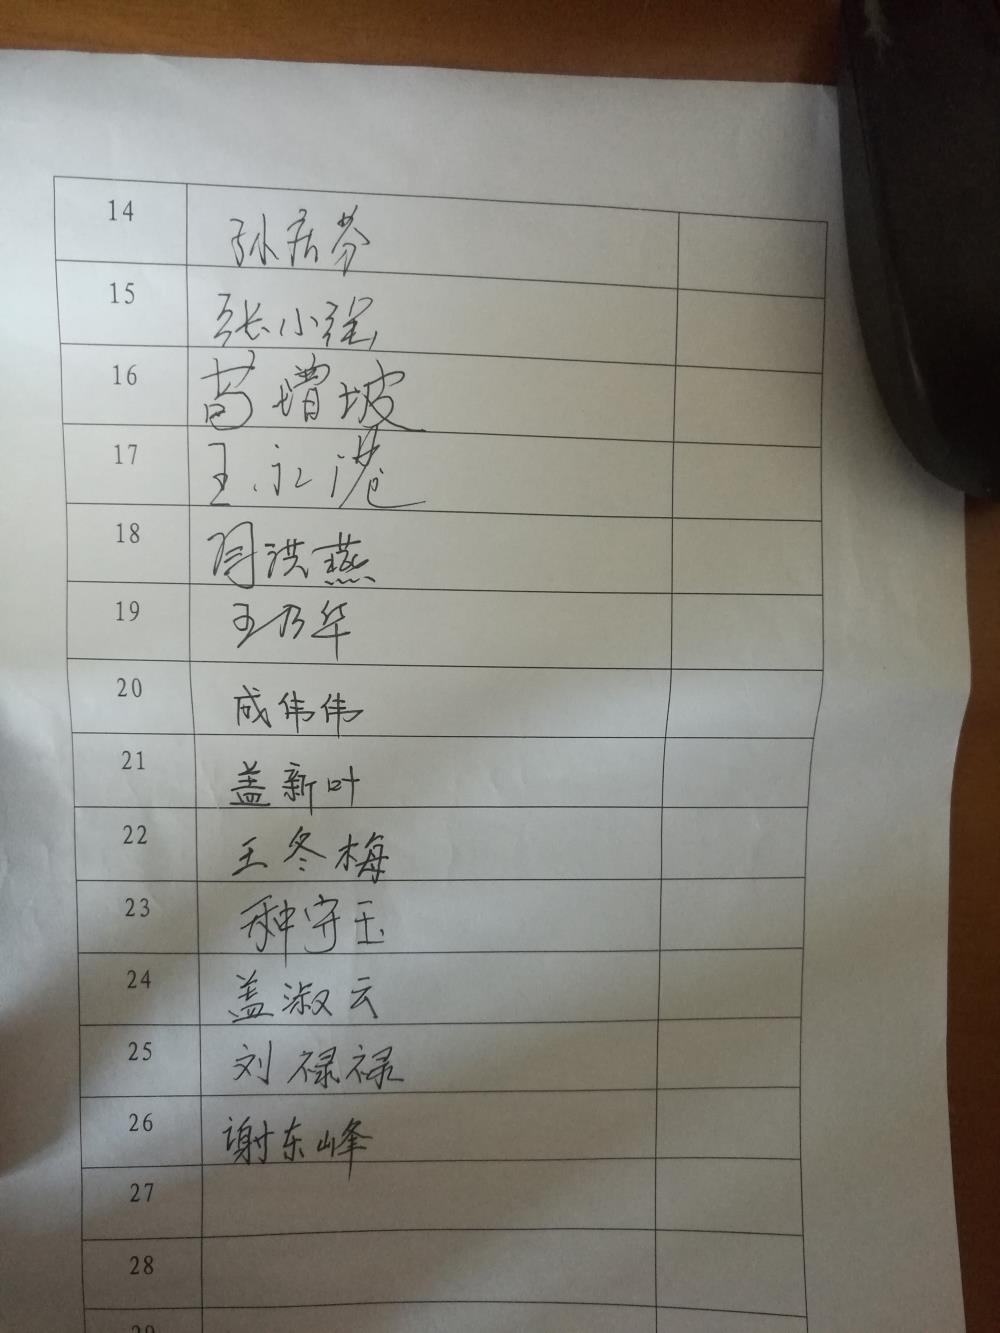 14 孙居芬
15 张小
16 苟增坡
17 王永港
18 闫洪燕
19 王乃华
20 成伟伟
21 盖新叶
22 王冬梅
23 种守玉
24 盖淑云
25 刘禄禄
26 谢东峰
27
28